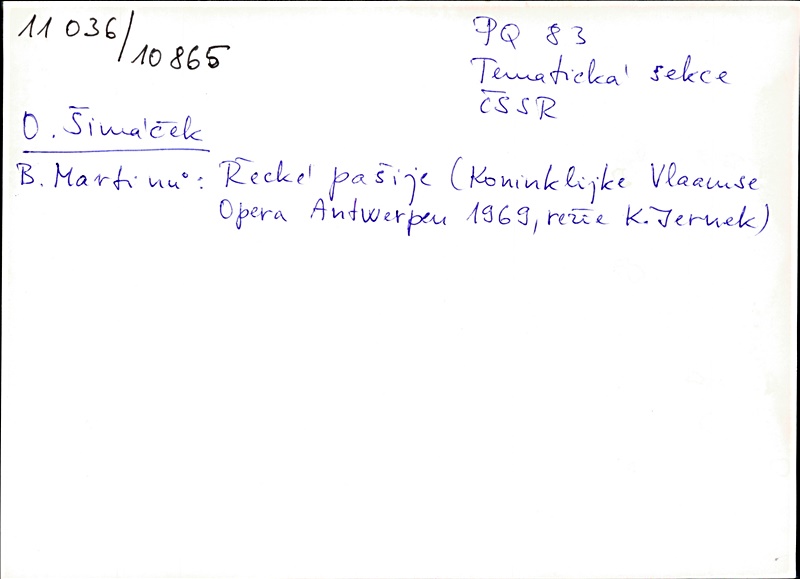 11 036/10865
PQ 83
Tematická sekce
ČSSR
O. Šimáček
B. Martinů: Řecké pašije (Koninklijke Vlaamse
Opera Antwerpen 1969, režie K. Jernek)